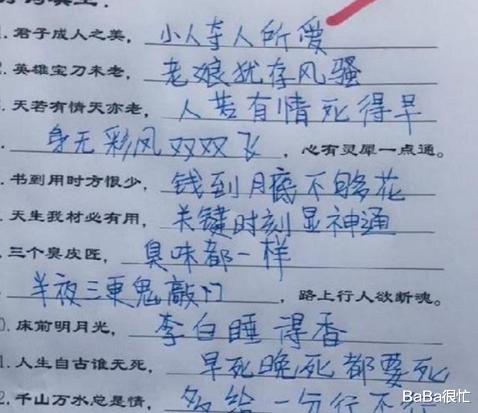 君子成人之美，小人夺人所爱
英雄宝刀未老，老娘犹存风骚
天若有情天亦老，人若有情死得早
身无彩凤双双飞，心有灵犀一点通。
书到用时方恨少，钱到月底不够花
天生我材必有用，关键时刻显神通
三个臭皮匠，臭味都一样
半夜三更鬼敲门，路上行人欲断魂。
0. 床前明月光，李白睡得香
1. 人生自古谁无死，早死晚死都要死
2. 千山万水总是情，多给一分行不
BaBa很忙